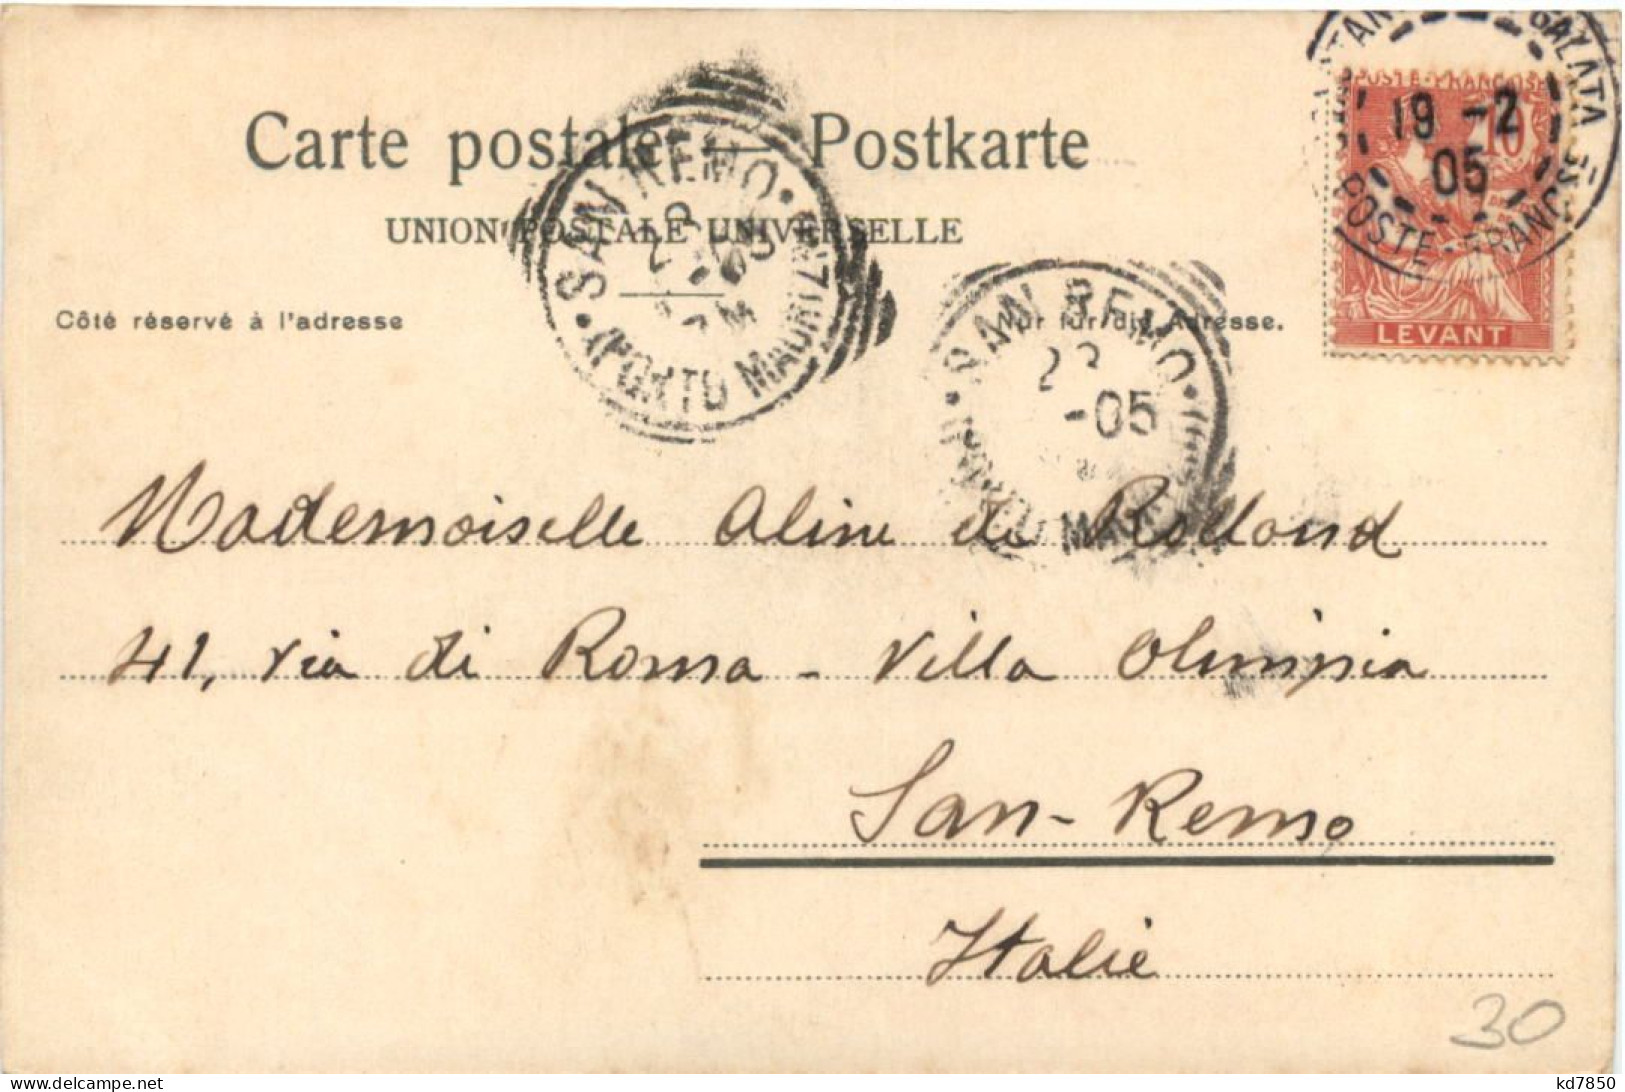 Carte postale — Postkarte
UNION POSTALE UNIVERSELLE
Côté réservé à l'adresse
Nur für die Adresse.
SAN REMO
(PORTO MAURIZIO)
SAN REMO
23
-05
(PORTO MAURIZIO)
GALATA
19 -2
05
POSTE FRANCSE
POSTE FRANÇAISE
10
LEVANT
Mademoiselle Aline de Rolland
41, via di Roma - Villa Olimpia
San-Remo
Italie
30
delcampe.net
kd7850